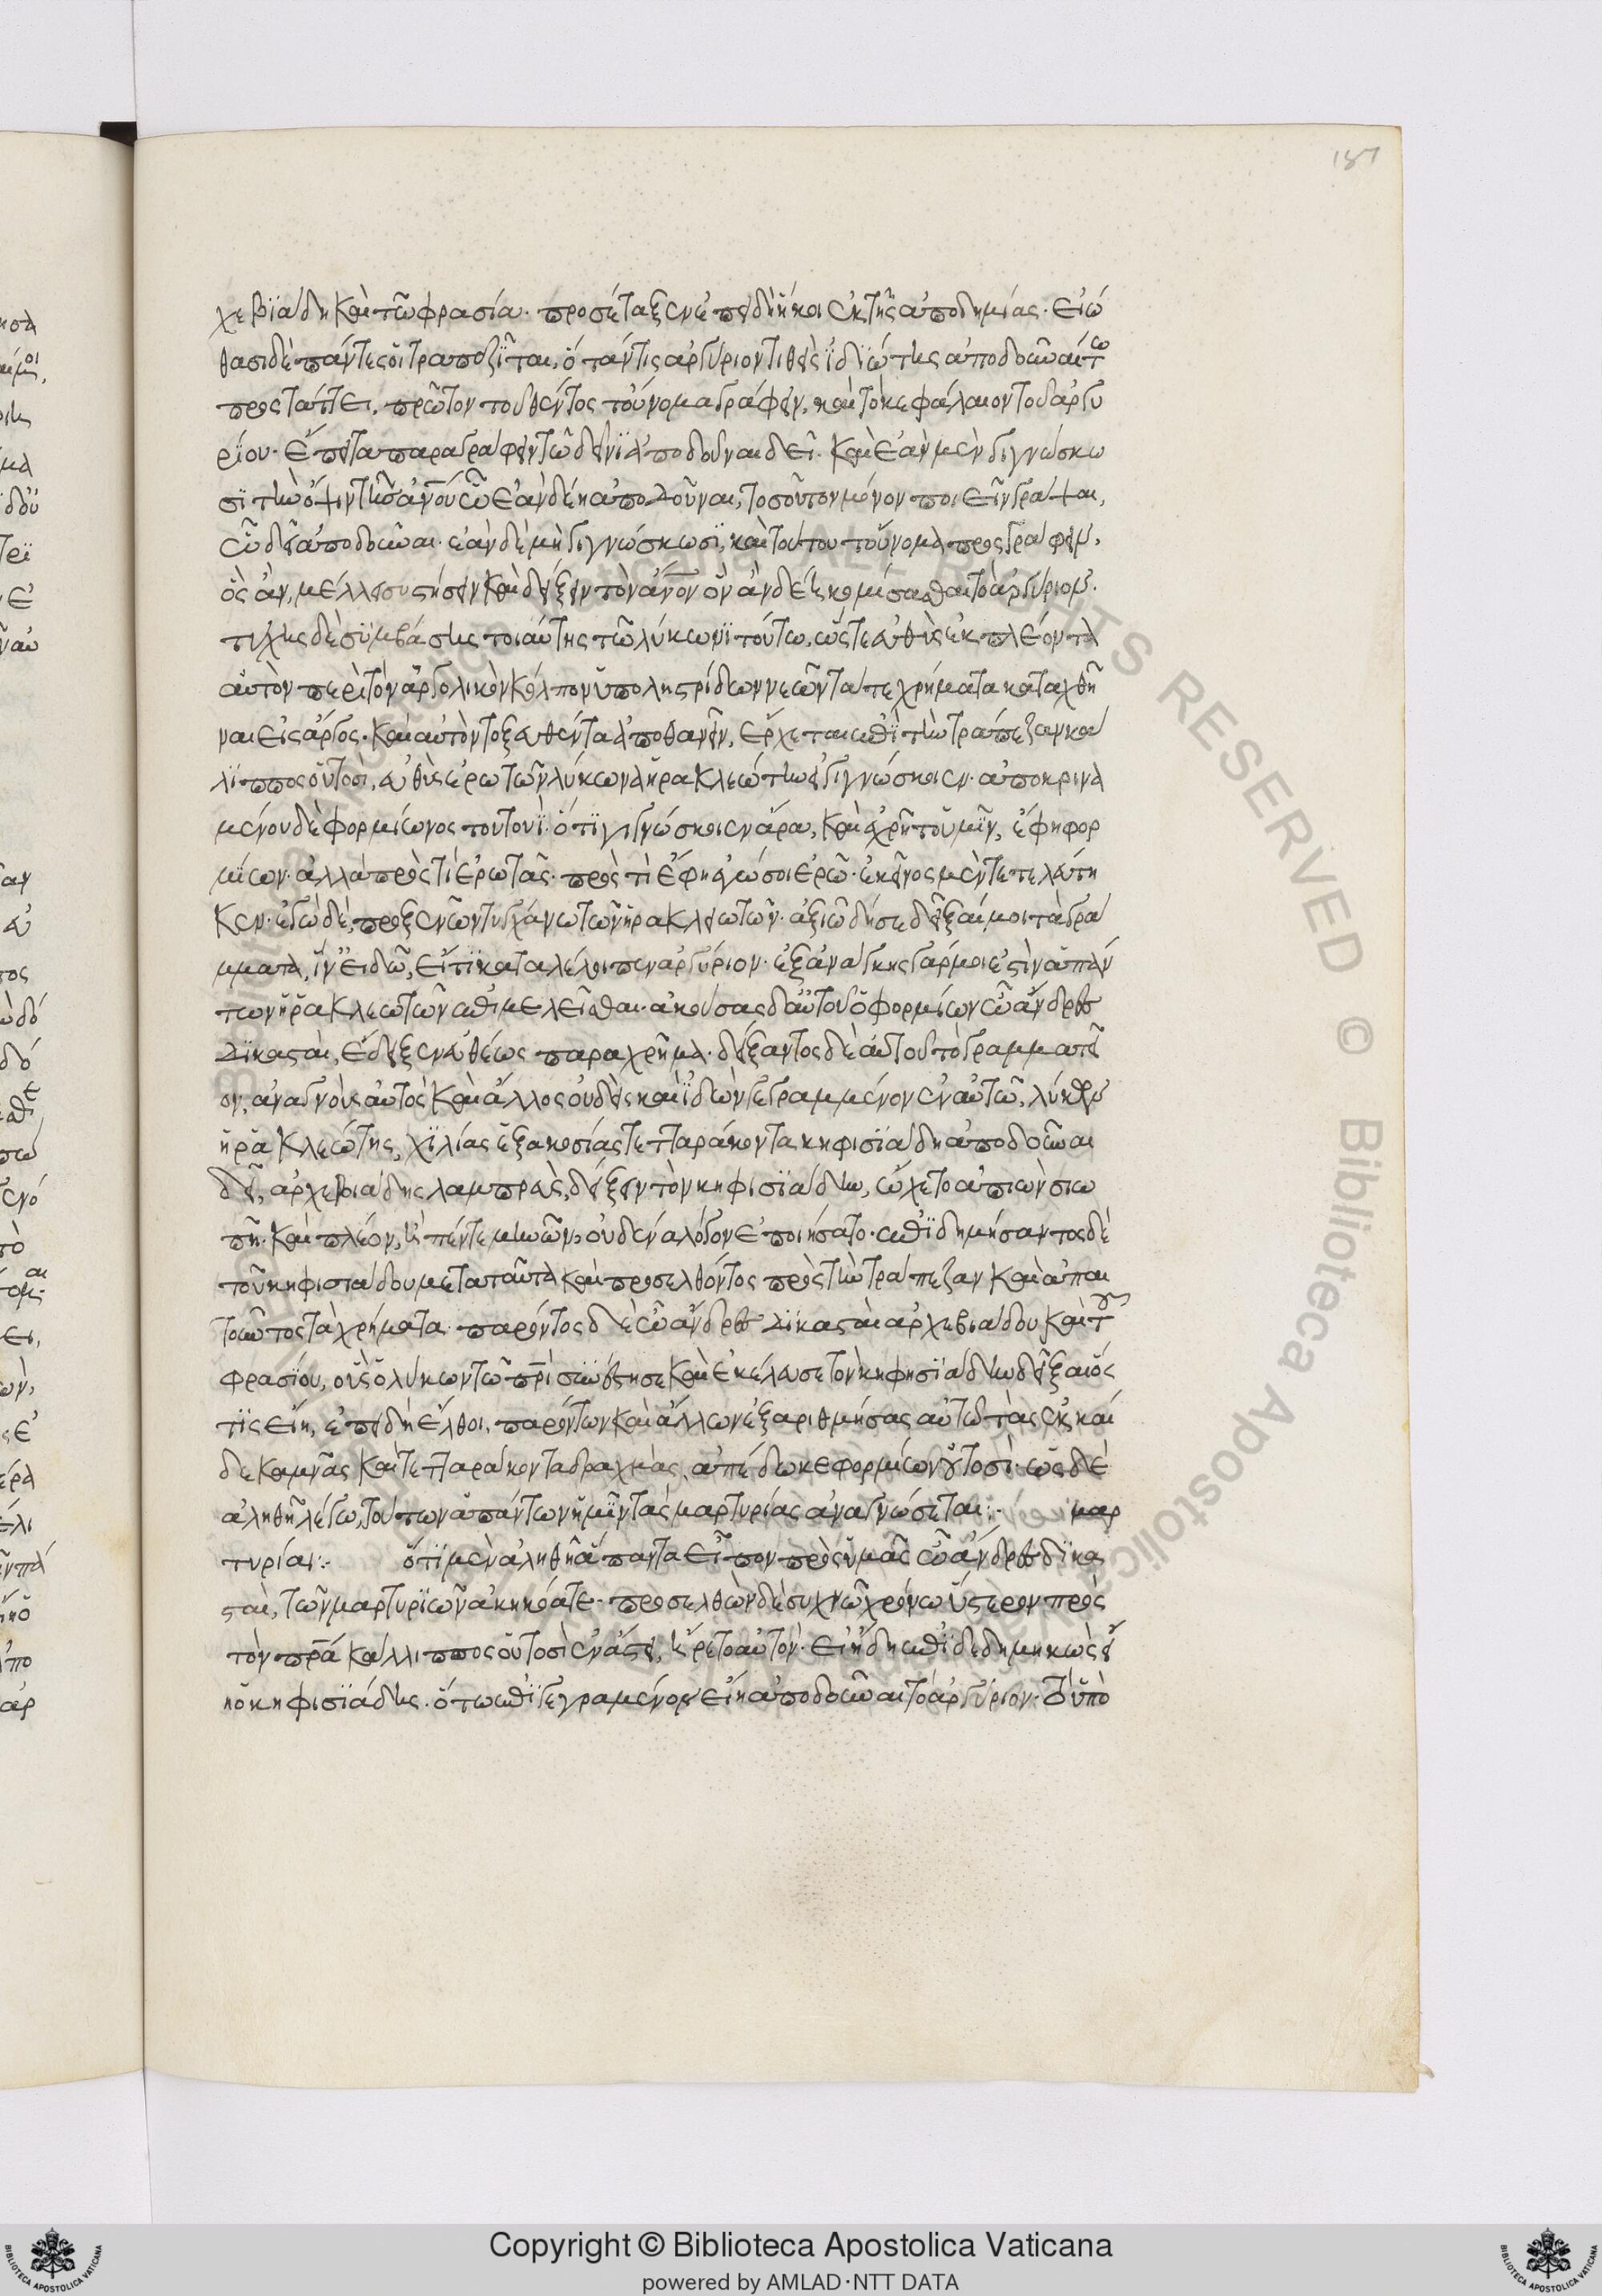 187
χεβϊάδη καὶ τῶ φρασία· προσέταξεν ἐπειδὴ ἥκοι ἐκ τῆς ἀποδημίας· εἰώ
θασι δὲ πάντες οἱ τραπεζῖται, ὅταν τις ἀργύριον τιθεὶς ἰδϊώτης ἀποδοῦναί τω
προστάττει, πρῶτον τοῦ θέντος τοὔνομα γράφειν, καὶ τὸ κεφάλαιον τοῦ ἀργυ
ρίου· ἔπειτα παραγράφειν τῶ δεῖνϊ ἀποδοῦναι δεῖ· καὶ ἐὰν μὲν γιγνώσκω
σϊ τὴν ὄψιν τῆς ἀνου ὧ ἐὰν δέη ἀποδοῦναι, τοσοῦτον μόνον ποιεῖν γράψαι,
ὧ δεῖ ἀποδοῦναι· ἐὰν δὲ μὴ γιγνώσκωσϊ, καὶ τούτου τοὔνομα προσγράφειν,
ὃς ἂν, μέλλη συστήσειν καὶ δείξειν τὸν ἀνον ὃν ἂν δέη κομίσασθαι τὸ ἀργύριον·
τύχης δὲ συμβάσης τοιαύτης τῶ λύκωνϊ τούτω, ὥστε εὐθὺς ἐκπλέοντα
αὐτὸν περὶ τὸν ἀργολικὸν κόλπον ὑπὸ ληστρίδων νεῶν τά τε χρήματα καταχθῆ
ναι εἰς ἄργος· καὶ αὐτὸν τοξευθέντα ἀποθανεῖν, ἔρχεται ἐπϊ τὴν τράπεζαν κάλ
λϊππος οὑτοσὶ, εὐθὺς ἐρωτῶν λύκωνα ἡρακλεώτην εἰ γιγνώσκοιεν· ἀποκρινα
μένου δὲ φορμίωνος τουτουῒ· ὅτϊ γιγνώσκοιεν ἄρα, καὶ ἐχρῆτο ὑμῖν, ἔφη φορ
μίων· ἀλλὰ πρὸς τί ἐρωτᾶς· πρὸς τὶ ἔφη ἐγώ σοι ἐρῶ· ἐκεῖνος μὲν τετελεύτη
κεν· ἐγὼ δὲ, προξενῶν τυγχάνω τῶν ἡρακλεωτῶν· ἀξιῶ δή σε δεῖξαί μοι τὰ γρά
μματα, ἵν' εἰδῶ, εἴ τϊ καταλέλοιπεν ἀργύριον· ἐξ ἀνάγκης γάρ μοι ἐστὶν ἁπάν
των ἡρακλεωτῶν ἐπϊμελεῖσθαι· ἀκούσας δ' αὐτοῦ ὁ φορμίων ὦ ἄνδρες
δϊκασταὶ, ἔδειξεν εὐθέως παραχρῆμα· δείξαντος δὲ αὐτοῦ τὸ γραμματεῖ
ον, ἀναγνοὺς αὐτὸς καὶ ἄλλος οὐδεὶς καὶ ἰδὼν γεγραμμένον ἐν αὐτῶ, λύκων
ἡρακλεώτης, χϊλίας ἑξακοσίας τετταράκοντα κηφισϊάδη ἀποδοῦναι
δεῖ, ἀρχεβιάδης λαμπρεὺς, δείξειν τὸν κηφισϊάδην, ὤχετο ἀπιὼν σιω
πῆ· καὶ πλέον, ἢ πέντε μηνῶν, οὐδένα λόγον ἐποιήσατο· ἐπϊδημήσαντος δὲ
τοῦ κηφισιάδου μετὰ ταῦτα καὶ προσελθόντος πρὸς τὴν τράπεζαν καὶ ἀπαι
τοῦντος τὰ χρήματα· παρόντος δὲ ὦ ἄνδρες δϊκασταὶ ἀρχεβιάδου καὶ τοῦ
φρασίου, οὓς ὁ λύκων τῶ πρὶ συνέστησε καὶ ἐκέλευσε τὸν κηφησϊάδην δεῖξαι ὅς
τϊς εἴη, ἐπειδὴ ἔλθοι, παρόντων καὶ ἄλλων ἐξαριθμήσας αὐτῶ τὰς ἐκκαί
δεκα μνᾶς καὶ τετταράκοντα δραχμὰς, ἀπέδωκε φορμίων οὑτοσὶ· ὡς δὲ
ἀληθῆ λέγω, τούτων ἁπάντων ὑμῖν τὰς μαρτυρίας ἀναγνώσεται:- μαρ
τυρίαι:- ὅτϊ μὲν ἀληθῆ ἅπαντα εἶπον πρὸς ὑμᾶς ὦ ἄνδρες δϊκα
σταὶ, τῶν μαρτυρϊῶν ἀκηκόατε· προσελθὼν δὲ συχνῶ χρόνω ὕστερον πρὸς
τὸν πρα κάλλιππος οὑτοσὶ ἐν ἄστει, ἤρετο αὐτὸν· εἰ ἤδη ἐπϊδεδημηκὼς εἴ
η ὁ κηφισϊάδης· ὅτω ἐπϊγεγραμένον εἴη ἀποδοῦναι τὸ ἀργύριον· τὸ ὑπὸ
Copyright © Biblioteca Apostolica Vaticana
powered by AMLAD·NTT DATA